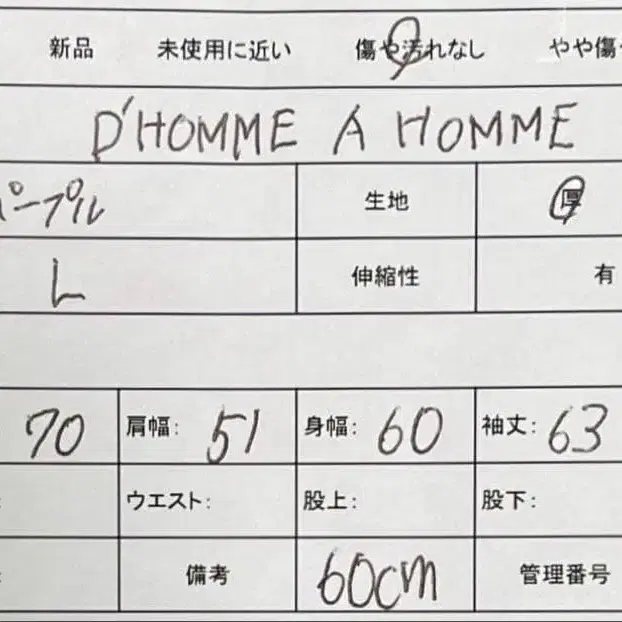 新品 未使用に近い 傷や汚れなし やや傷
D'HOMME A HOMME
パープル 生地 厚
L 伸縮性 有
70 肩幅: 51 身幅: 60 袖丈: 63
: ウエスト: 股上: 股下:
: 備考 60cm 管理番号